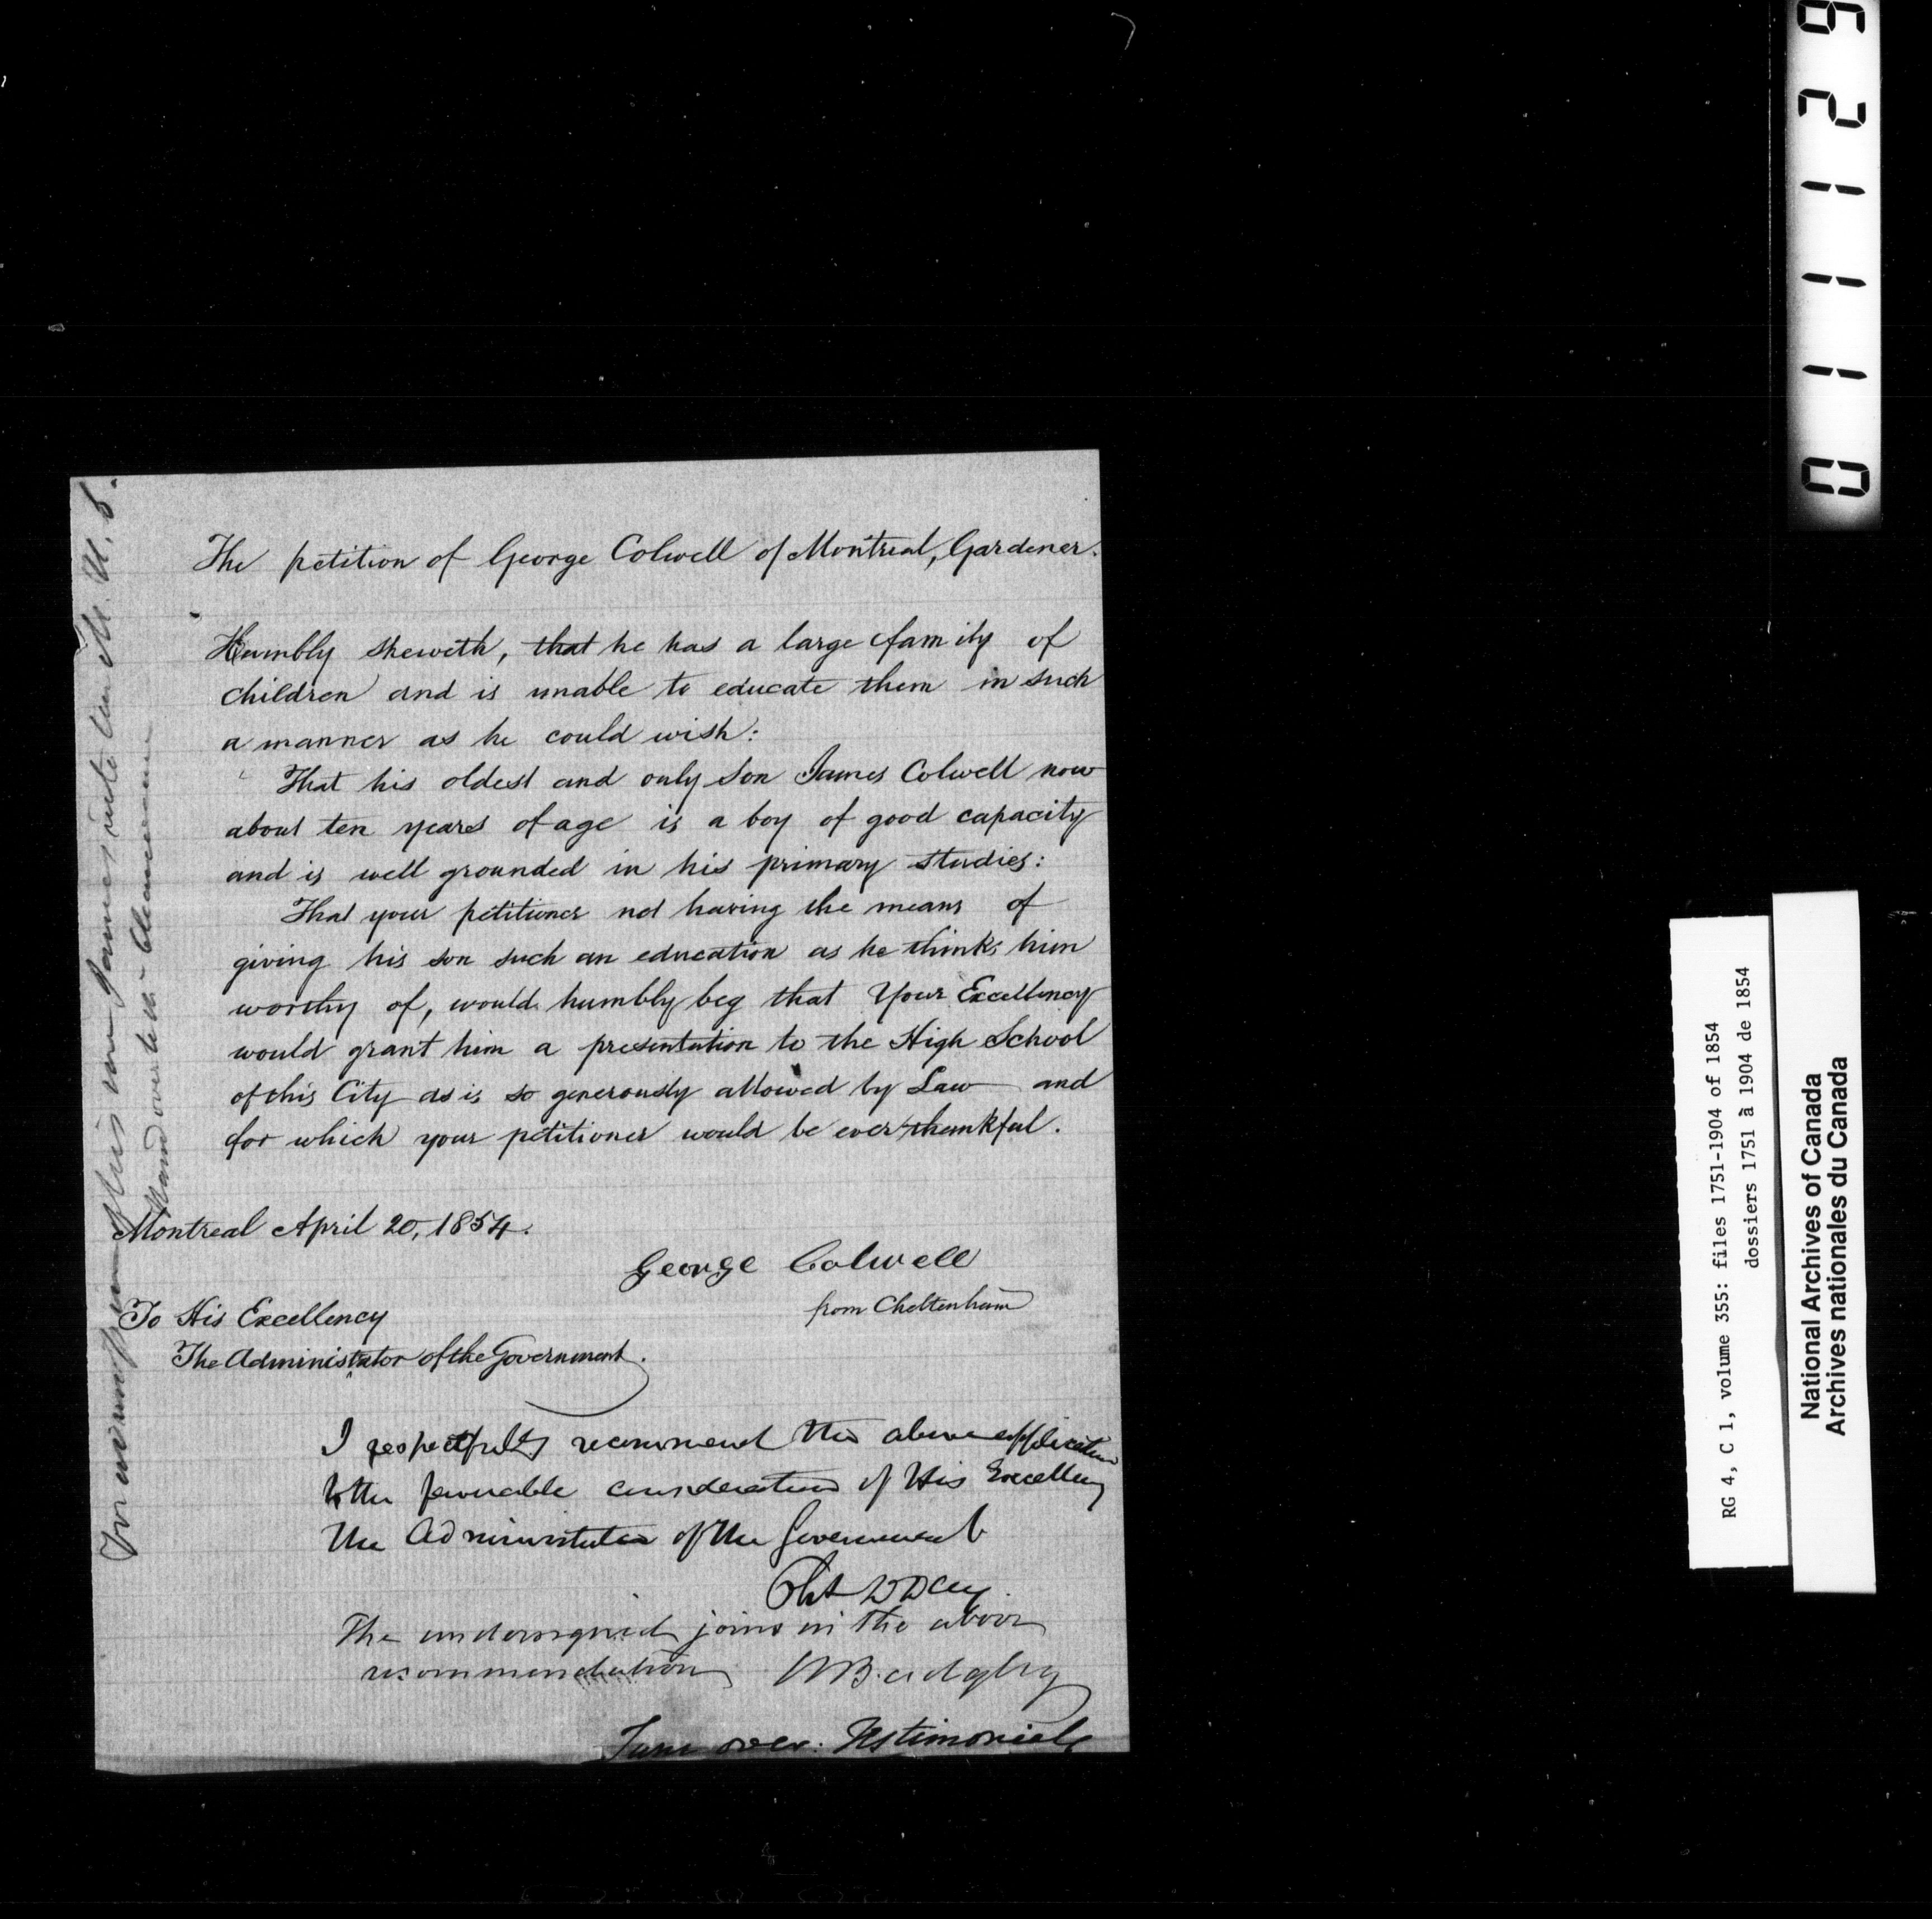 The petition of George Colwell of Montreal, Gardener.
Humbly sheweth, that he has a large family of
children and is unable to educate them in such
a manner as he could wish:
That his oldest and only son James Colwell now
about ten years of age is a boy of good capacity
and is well grounded in his primary studies:
That your petitioner not having the means of
giving his son such an education as he thinks him
worthy of, would humbly beg that Your Excellency
would grant him a presentation to the High School
of this City as is so generously allowed by Law and
for which your petitioner would be ever thankful.
Montreal April 20, 1854.
George Colwell
from Cheltenham
To His Excellency
The Administrator of the Government.
I respectfully recommend the above application
to the favourable consideration of His Excellency
the Administrator of the Government
Day
The undersigned joins in the above
recommendation W Badgley
Turn over. Testimonials
this
M. U. S.
Hand over to
011129
RG 4, C 1, volume 355: files 1751-1904 of 1854
dossiers 1751 à 1904 de 1854
National Archives of Canada
Archives nationales du Canada